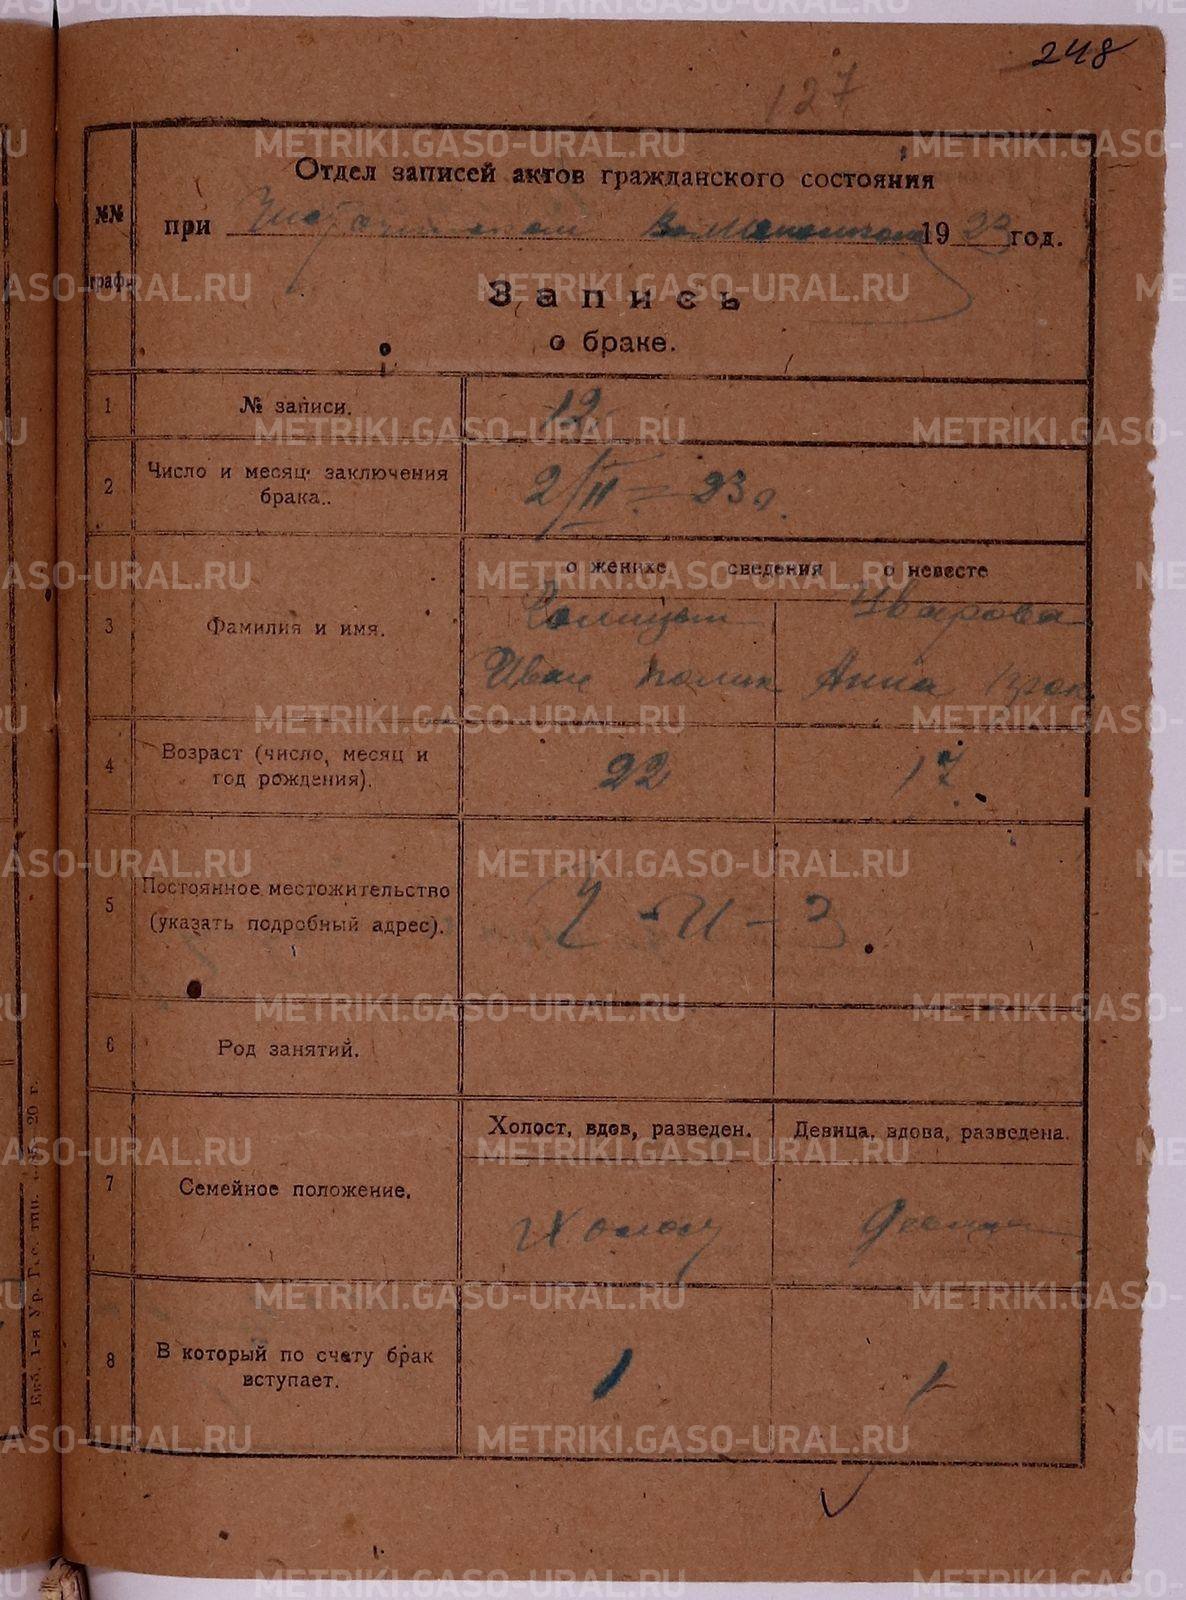 248
127
Отдел записей актов гражданского состояния
№№ граф.
при 1923 год.
Запись
о браке.
1 № записи. 12
2 Число и месяц заключения брака. 2/II - 23 г.
о женихе сведения о невесте
3 Фамилия и имя.
Уварова
Иван Анна
4 Возраст (число, месяц и год рождения). 22 17
5 Постоянное местожительство (указать подробный адрес). Ч-И-З
6 Род занятий.
Холост, вдов, разведен. Девица, вдова, разведена.
7 Семейное положение. Холост Девица
8 В который по счету брак вступает. 1 1
Екб. 1-я Ур. Гос. тип. 20 г.
METRIKI.GASO-URAL.RU